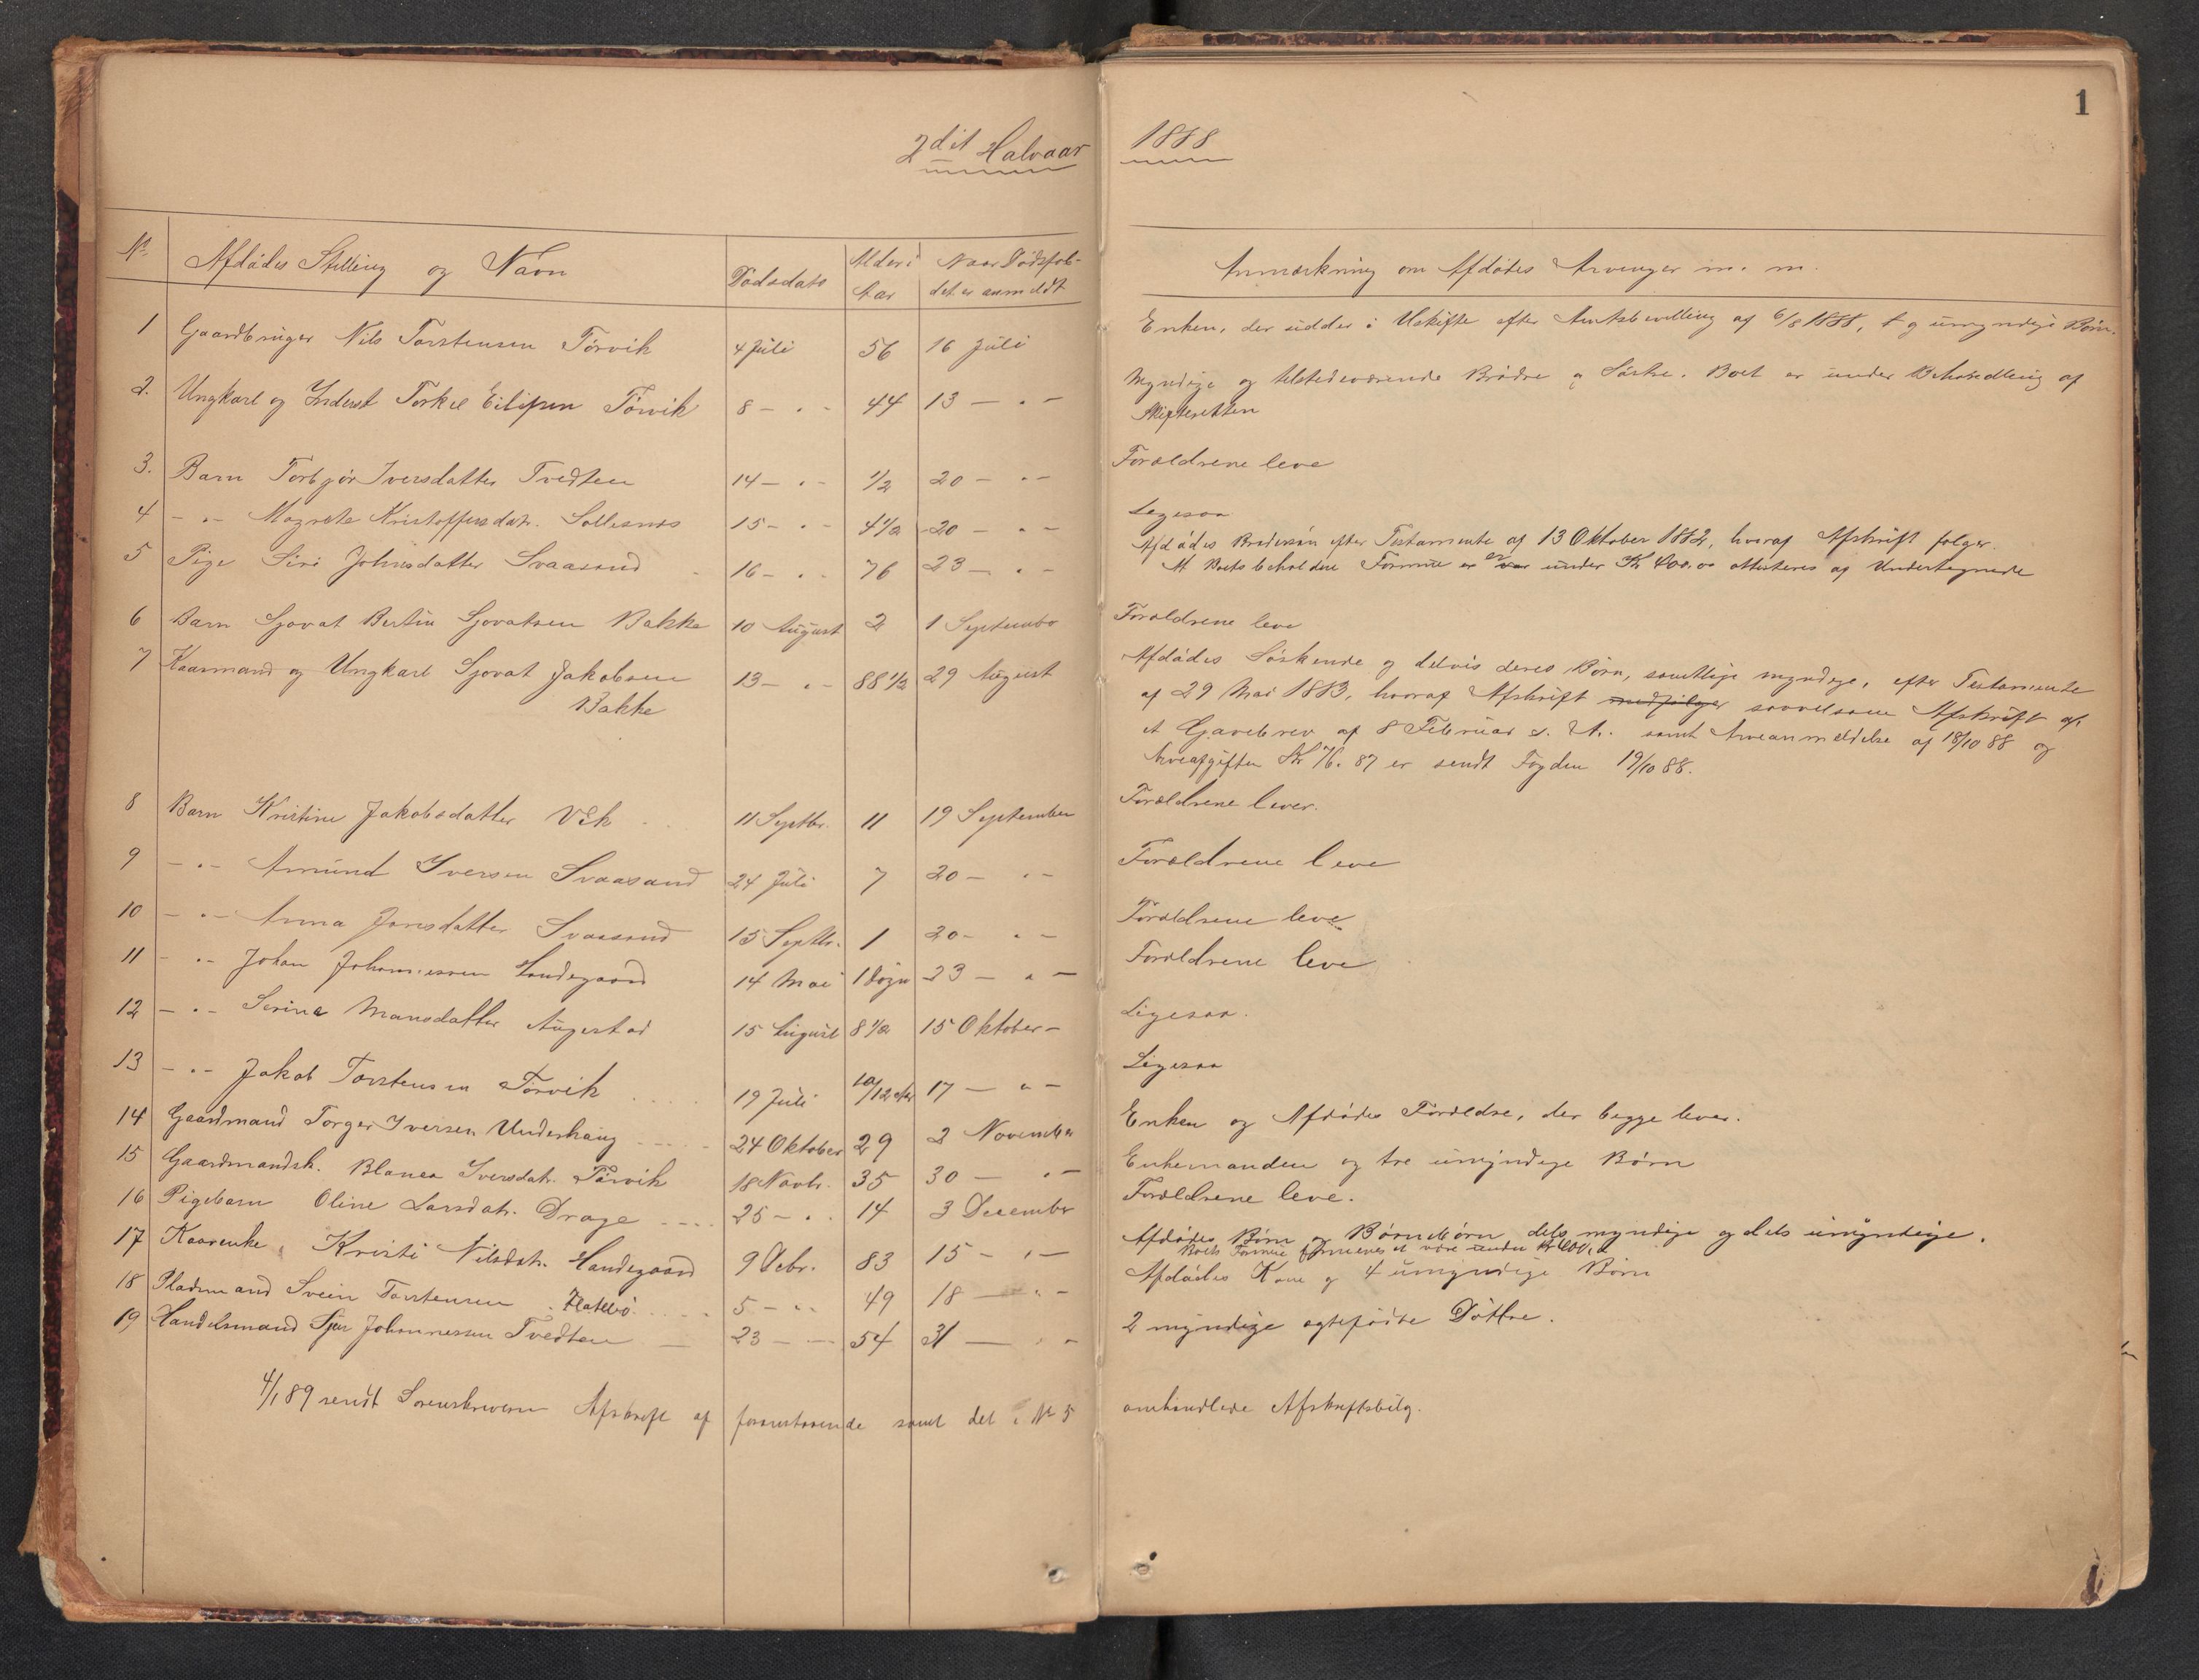 1
2det Halvaar 1888
No Afdødes Stilling og Navn Dødsdato Alder i Aar Naar Dødsfaldet er anmeldt Anmærkning om Afdødes Arvinger m. m.
1 Gaardbruger Nils Torstensen Tørvik 4 Juli 56 16 Juli Enken, der sidder i Uskifte efter Amtsbevilling af 6/8 1888, og umyndige Børn.
2. Ungkarl og Inderst Torkel Eilifsen Tørvik 8 - . - 44 13 - . - Myndige og tilstedeværende Brødre og Søstre. Boet er under Behandling af
Skifteretten
3. Barn Torbjør Iversdatter Tvedten 14 - . - 1/2 20 - . - Forældrene leve
4 - . - Magrete Kristoffersdatr. Sollesnes 15 - . - 4 1/2 20 - . - Ligesaa
5 Pige Siri Johnsdatter Svaasand 16 - . - 76 23 - . - Afdødes Brodersøn efter Testamente af 13 Oktober 1882, hvoraf Afskrift følger.
At Boets beholdne Formue er var er under Kr 400,00 attesteres af Undertegnede
6 Barn Sjovat Bertin Sjovatsen Bakke 10 August 2 1 September Forældrene leve
7 Kaarmand og Ungkarl Sjovat Jakobsen 13 - . - 88 1/2 29 August Afdødes Søskende og delvis deres Børn, samtlige myndige, efter Testamente
Bakke af 29 Mai 1883, hvoraf Afskrift medfølger saavelsom Afskrift af
et Gavebrev af 8 Februar s. A. samt Arveanmeldelse af 18/10 88 og
Arveafgiften Kr 76.87 er sendt Fogden 19/10 88.
8 Barn Kristine Jakobsdatter Vik 11 Septbr. 11 19 September Forældrene lever.
9 - . - Amund Iversen Svaasand 24 Juli 7 20 - . - Forældrene leve
10 - . - Anna Jonsdatter Svaasand 15 Septbr. 1 20 - . - Forældrene leve
11 - . - Johan Johannessen Sandegaard 14 Mai 1 Døgn 23 - . - Forældrene leve
12 - . - Serina Mansdatter Augestad 15 August 8 1/2 15 Oktober - Ligesaa.
13 - . - Jakob Torstensen Tørvik 19 Juli 10/12 17 - . - Ligesaa
14 Gaardmand Torger Iversen Underhaug 24 Oktober 29 2 November Enken og Afdødes Forældre, der begge lever.
15 Gaardmandsk. Blansa Iversdatr. Tørvik 18 Novbr. 35 30 - . - Enkemanden og tre umyndige Børn
16 Pigebarn Oline Larsdatr. Drage 25 - . - 14 3 December Forældrene leve.
17 Kaarenke, Kristi Nilsdatr. Handegaard 9 Debr. 83 15 - . - Afdødes Børn og Børnebørn dels myndige og dels umyndige.
Boets Formue formenes at være under Kr 400,
18 Pladsmand Svein Torstensen Flatebø 5 - . - 49 18 - . - Afdødes Kone og 4 umyndige Børn
19 Handelsmand Sjur Johannessen Tvedten 23 - . - 54 31 - . - 2 myndige ægtefødte Døttre.
4/1 89 sendt Sorenskriveren Afskrift af foranstaaende samt det i No 5 omhandlede Afskriftsbilag.